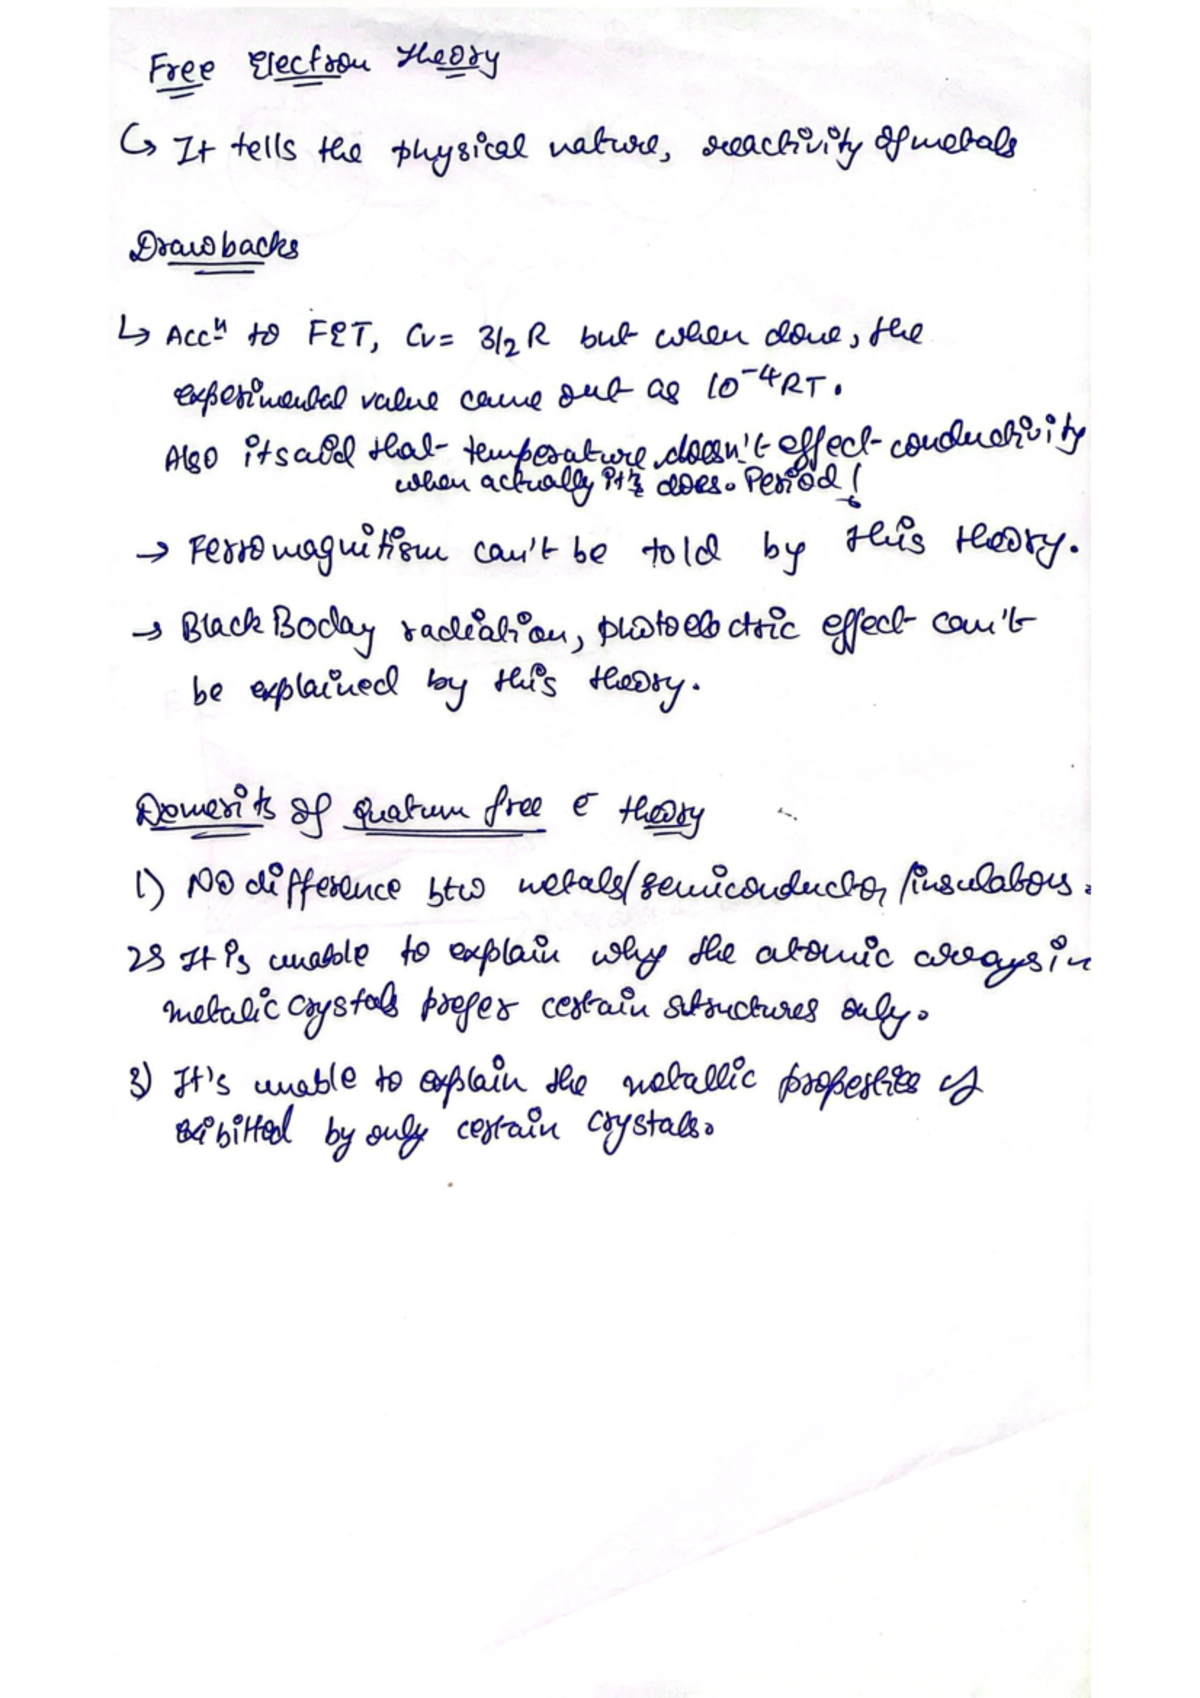 Free Electron theory
↳ It tells the physical nature, reactivity of metals
Drawbacks
↳ Accⁿ to FET, Cv = 3/2 R but when done, the
experimental value came out as 10⁻⁴RT.
Also it said that temperature doesn't effect conductivity
when actually it does. Period!
→ Ferromagnitism can't be told by this theory.
→ Black Boday radiation, photoelectric effect can't
be explained by this theory.
Demerits of quatum free e theory
1) No difference btw metals/semiconductor/insulators.
2) It is unable to explain why the atomic arrays in
metalic crystals prefer certain structures only.
3) It's unable to explain the metallic properties of
exibitted by only certain crystals.